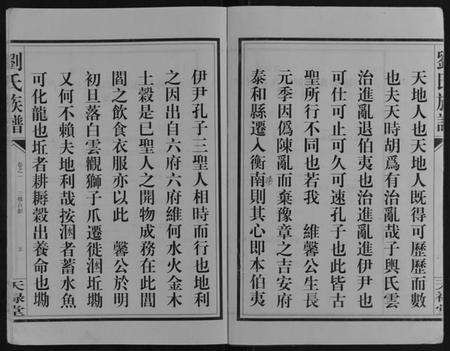 劉氏族譜
天禄堂
天地人也天地人既得可歷歷而數
也夫天時胡爲有治亂哉子輿氏雲
治進亂退伯夷也治進亂進伊尹也
可仕可止可久可速孔子也此皆古
聖所行不同也若我 維馨公生長
元季因僞陳亂而棄豫章之吉安府
泰和縣遷入衡南則其心即本伯夷
伊尹孔子三聖人相時而行也地利
之因出自六府六府維何水火金木
土穀是已聖人之開物成務在此閭
閻之飲食衣服亦以此 馨公於明
初旦落白雲觀獅子爪遷徙洄坵坳
又何不賴夫地利哉按洄者蓄水魚
可化龍也坵者耕耨穀出養命也坳
劉氏族譜
卷之一
天禄堂